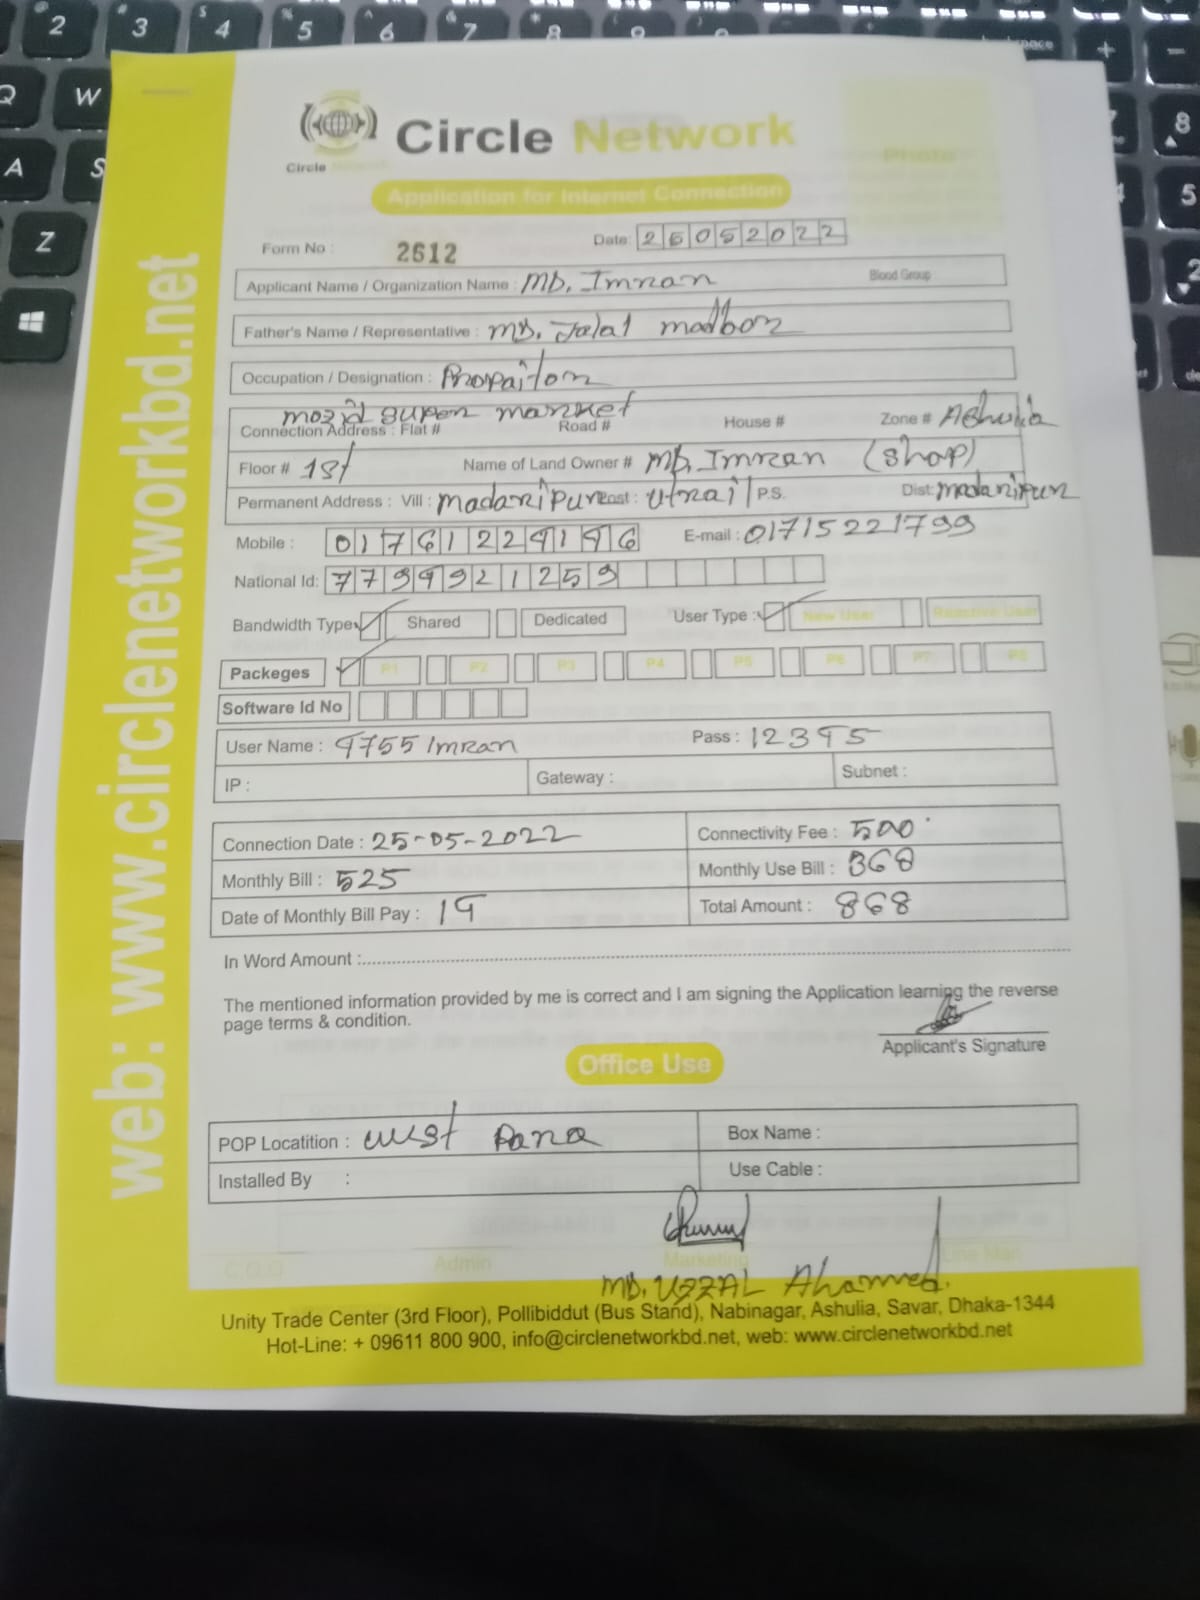 Circle Network
Circle
Photo
Application for Internet Connection
Form No : 2612 Date: 25052022
Applicant Name / Organization Name : MD. Imran Blood Group
Father's Name / Representative : MD. Jalal madbor
Occupation / Designation : Propaitor
mozid super market
Connection Address : Flat # Road # House # Zone # Ashulia
Floor # 1st Name of Land Owner # MD. Imran (shop)
Permanent Address : Vill : madaripur Post : utrail P.S. Dist: madaripur
Mobile : E-mail : 01715221799
National Id:
Bandwidth Type Shared Dedicated User Type : New User Reactive User
Packeges P1 P2 P3 P4 P5 P6 P7 P8
Software Id No
User Name : 9755 Imran Pass : 12345
IP : Gateway : Subnet :
Connection Date : 25-05-2022 Connectivity Fee : 500
Monthly Bill : 525 Monthly Use Bill : 368
Date of Monthly Bill Pay : Total Amount : 868
In Word Amount :
The mentioned information provided by me is correct and I am signing the Application learning the reverse
page terms & condition.
Applicant's Signature
Office Use
POP Locatition : west Para Box Name :
Installed By : Use Cable :
C.O.O Admin Marketing Line Man
MD. UZZAL Ahammed.
Unity Trade Center (3rd Floor), Pollibiddut (Bus Stand), Nabinagar, Ashulia, Savar, Dhaka-1344
Hot-Line: + 09611 800 900, info@circlenetworkbd.net, web: www.circlenetworkbd.net
web: www.circlenetworkbd.net